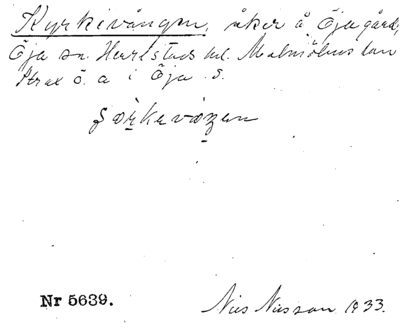 Kyrkevången, åker å Öja gård,
Öja sn. Herrestads hd. Malmöhus län
Strax ö. a i Öja s.
Nr 5639.
Nils Nilsson 1933.